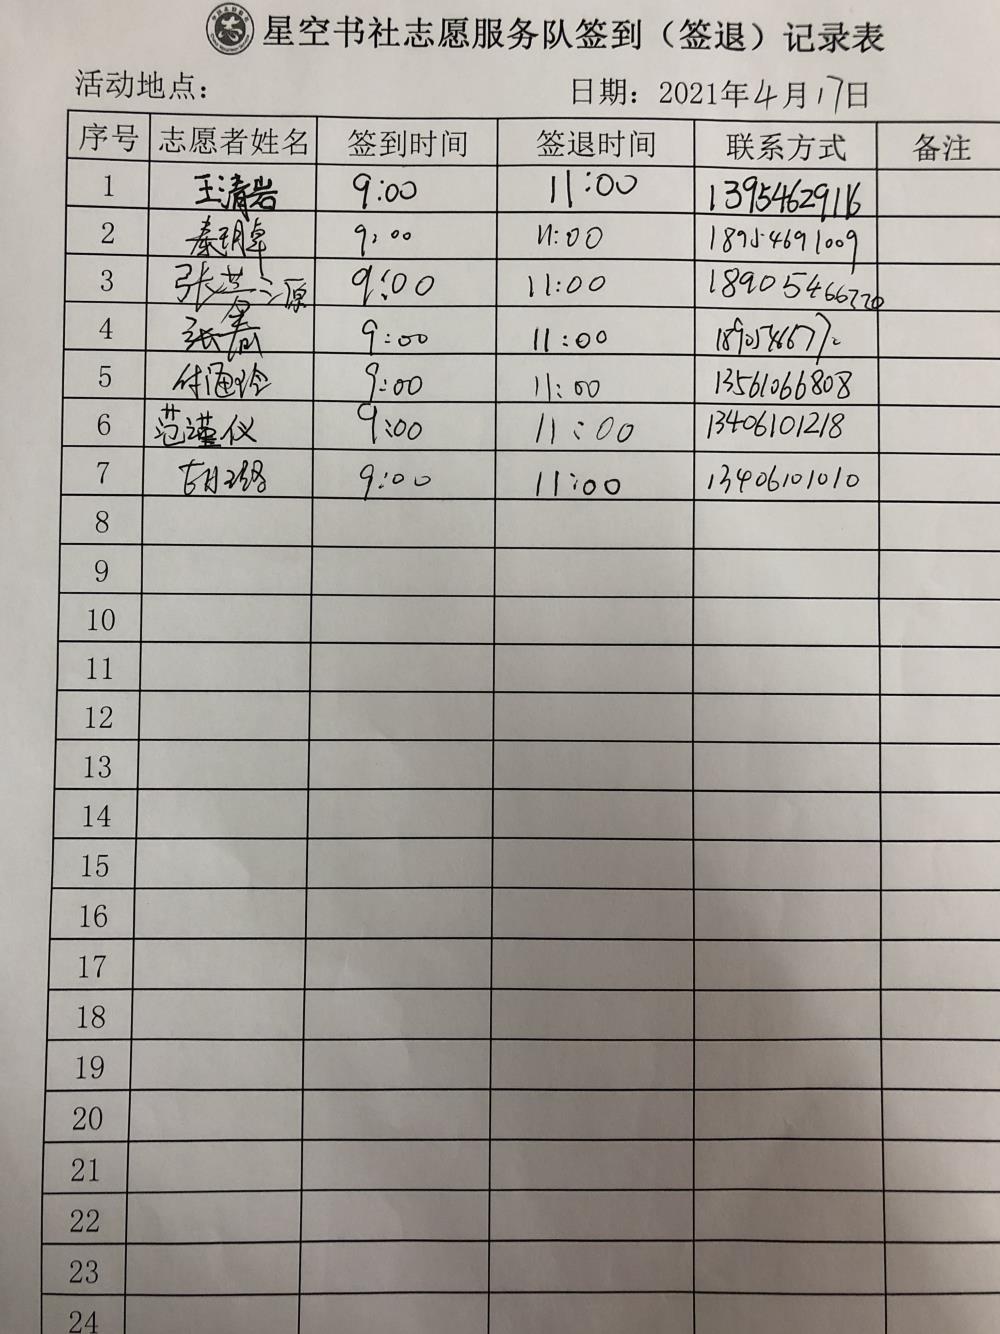 星空书社志愿服务队签到（签退）记录表
活动地点：
日期：2021年4月17日
序号 志愿者姓名 签到时间 签退时间 联系方式 备注
1 王清岩 9:00 11:00 13954629116
2 秦玥卓 9:00 11:00 18954691009
3 张芸之源 9:00 11:00 18905466220
4 张 9:00 11:00
5 付海玲 9:00 11:00 13561066808
6 范谨仪 9:00 11:00 13406101218
7 胡 9:00 11:00 13406101010
8
9
10
11
12
13
14
15
16
17
18
19
20
21
22
23
24